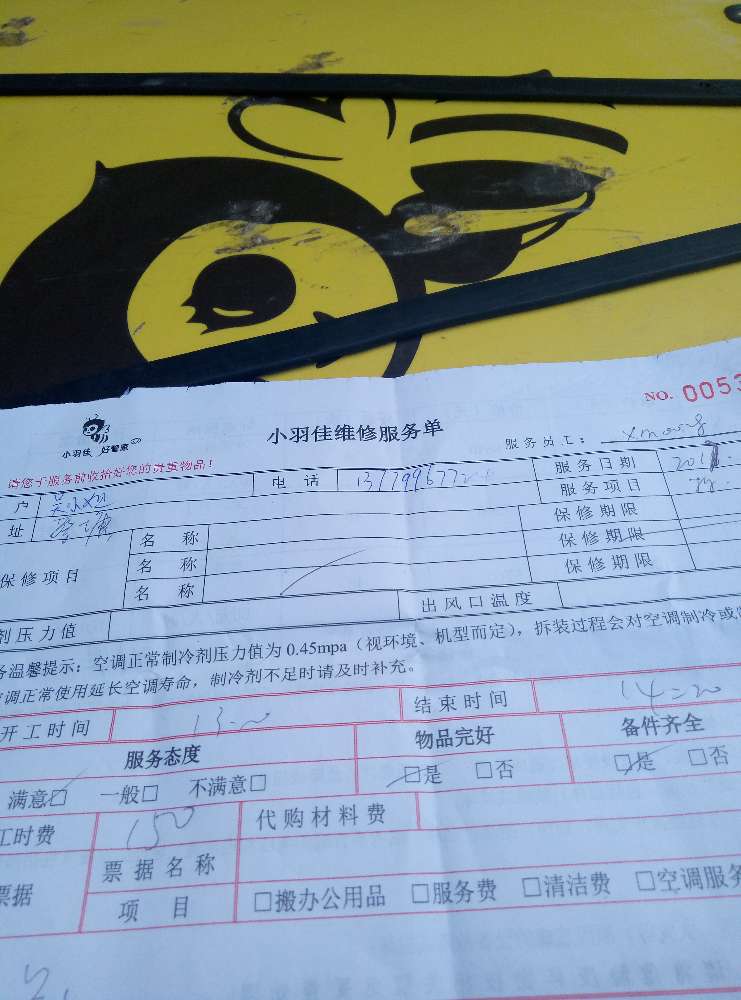 NO. 0053
小羽佳 好管家
小羽佳维修服务单
服务员工：
请您于服务前收拾好您的贵重物品！
户
电 话
服务日期
201
址
服务项目
保修项目
名 称
保修期限
名 称
保修期限
名 称
保修期限
剂压力值
出风口温度
务温馨提示：空调正常制冷剂压力值为 0.45mpa（视环境、机型而定），拆装过程会对空调制冷或
调正常使用延长空调寿命，制冷剂不足时请及时补充。
开工时间
13:00
结束时间
14:20
服务态度
物品完好
备件齐全
满意☑ 一般□ 不满意□
☑是 □否
☑是 □否
工时费
150
代购材料费
票据
票据名称
项 目
□搬办公用品 □服务费 □清洁费 □空调服务